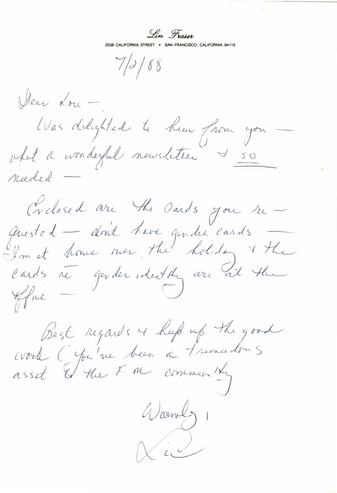 Lin Fraser
2538 CALIFORNIA STREET • SAN FRANCISCO, CALIFORNIA 94115
7/2/88
Dear Lou —
Was delighted to hear from you —
what a wonderful newsletter & so
needed —
Enclosed are the cards you re-
quested — don't have gender cards —
I'm at home over the holiday & the
cards re gender identity are at the
office —
Best regards & keep up the good
work (you've been a tremendous
asset to the F M community
Warmly,
Lin